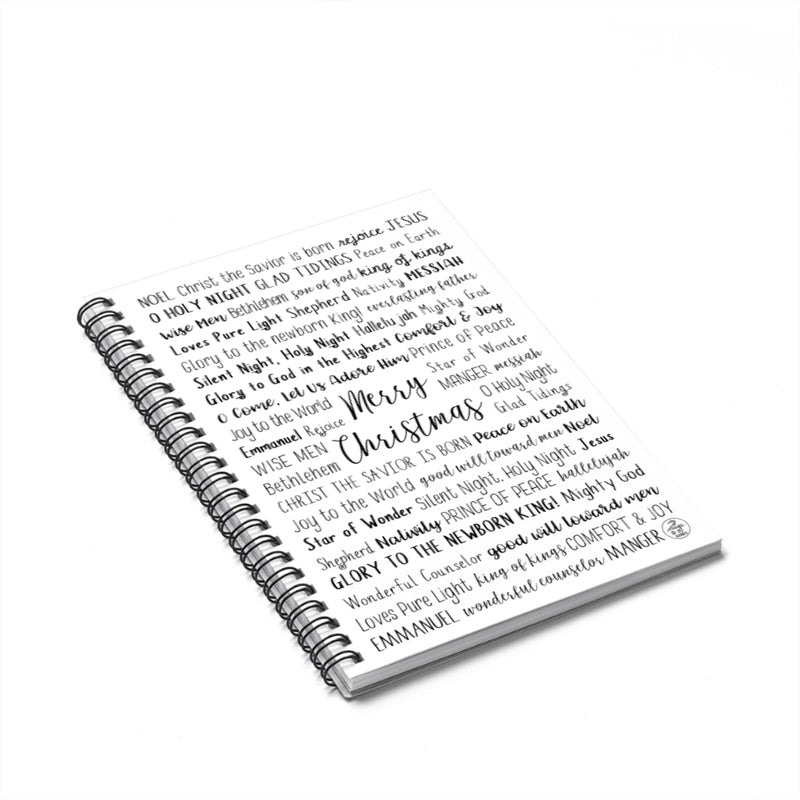 NOEL Christ the Savior is born rejoice JESUS
O HOLY NIGHT GLAD TIDINGS Peace on Earth
Wise Men Bethlehem son of god king of kings
Loves Pure Light Shepherd Nativity MESSIAH
Glory to the newborn King! everlasting father
Silent Night, Holy Night Hallelujah Mighty God
Glory to God in the Highest Comfort & Joy
O Come, Let Us Adore Him Prince of Peace
Joy to the World Merry Star of Wonder
Emmanuel Rejoice MANGER messiah
WISE MEN Christmas O Holy Night
Bethlehem Glad Tidings
CHRIST THE SAVIOR IS BORN Peace on Earth
Joy to the World good will toward men Noel
Star of Wonder Silent Night, Holy Night Jesus
Shepherd Nativity PRINCE OF PEACE hallelujah
GLORY TO THE NEWBORN KING! Mighty God
Wonderful Counselor good will toward men
Loves Pure Light king of kings COMFORT & JOY
EMMANUEL wonderful counselor MANGER